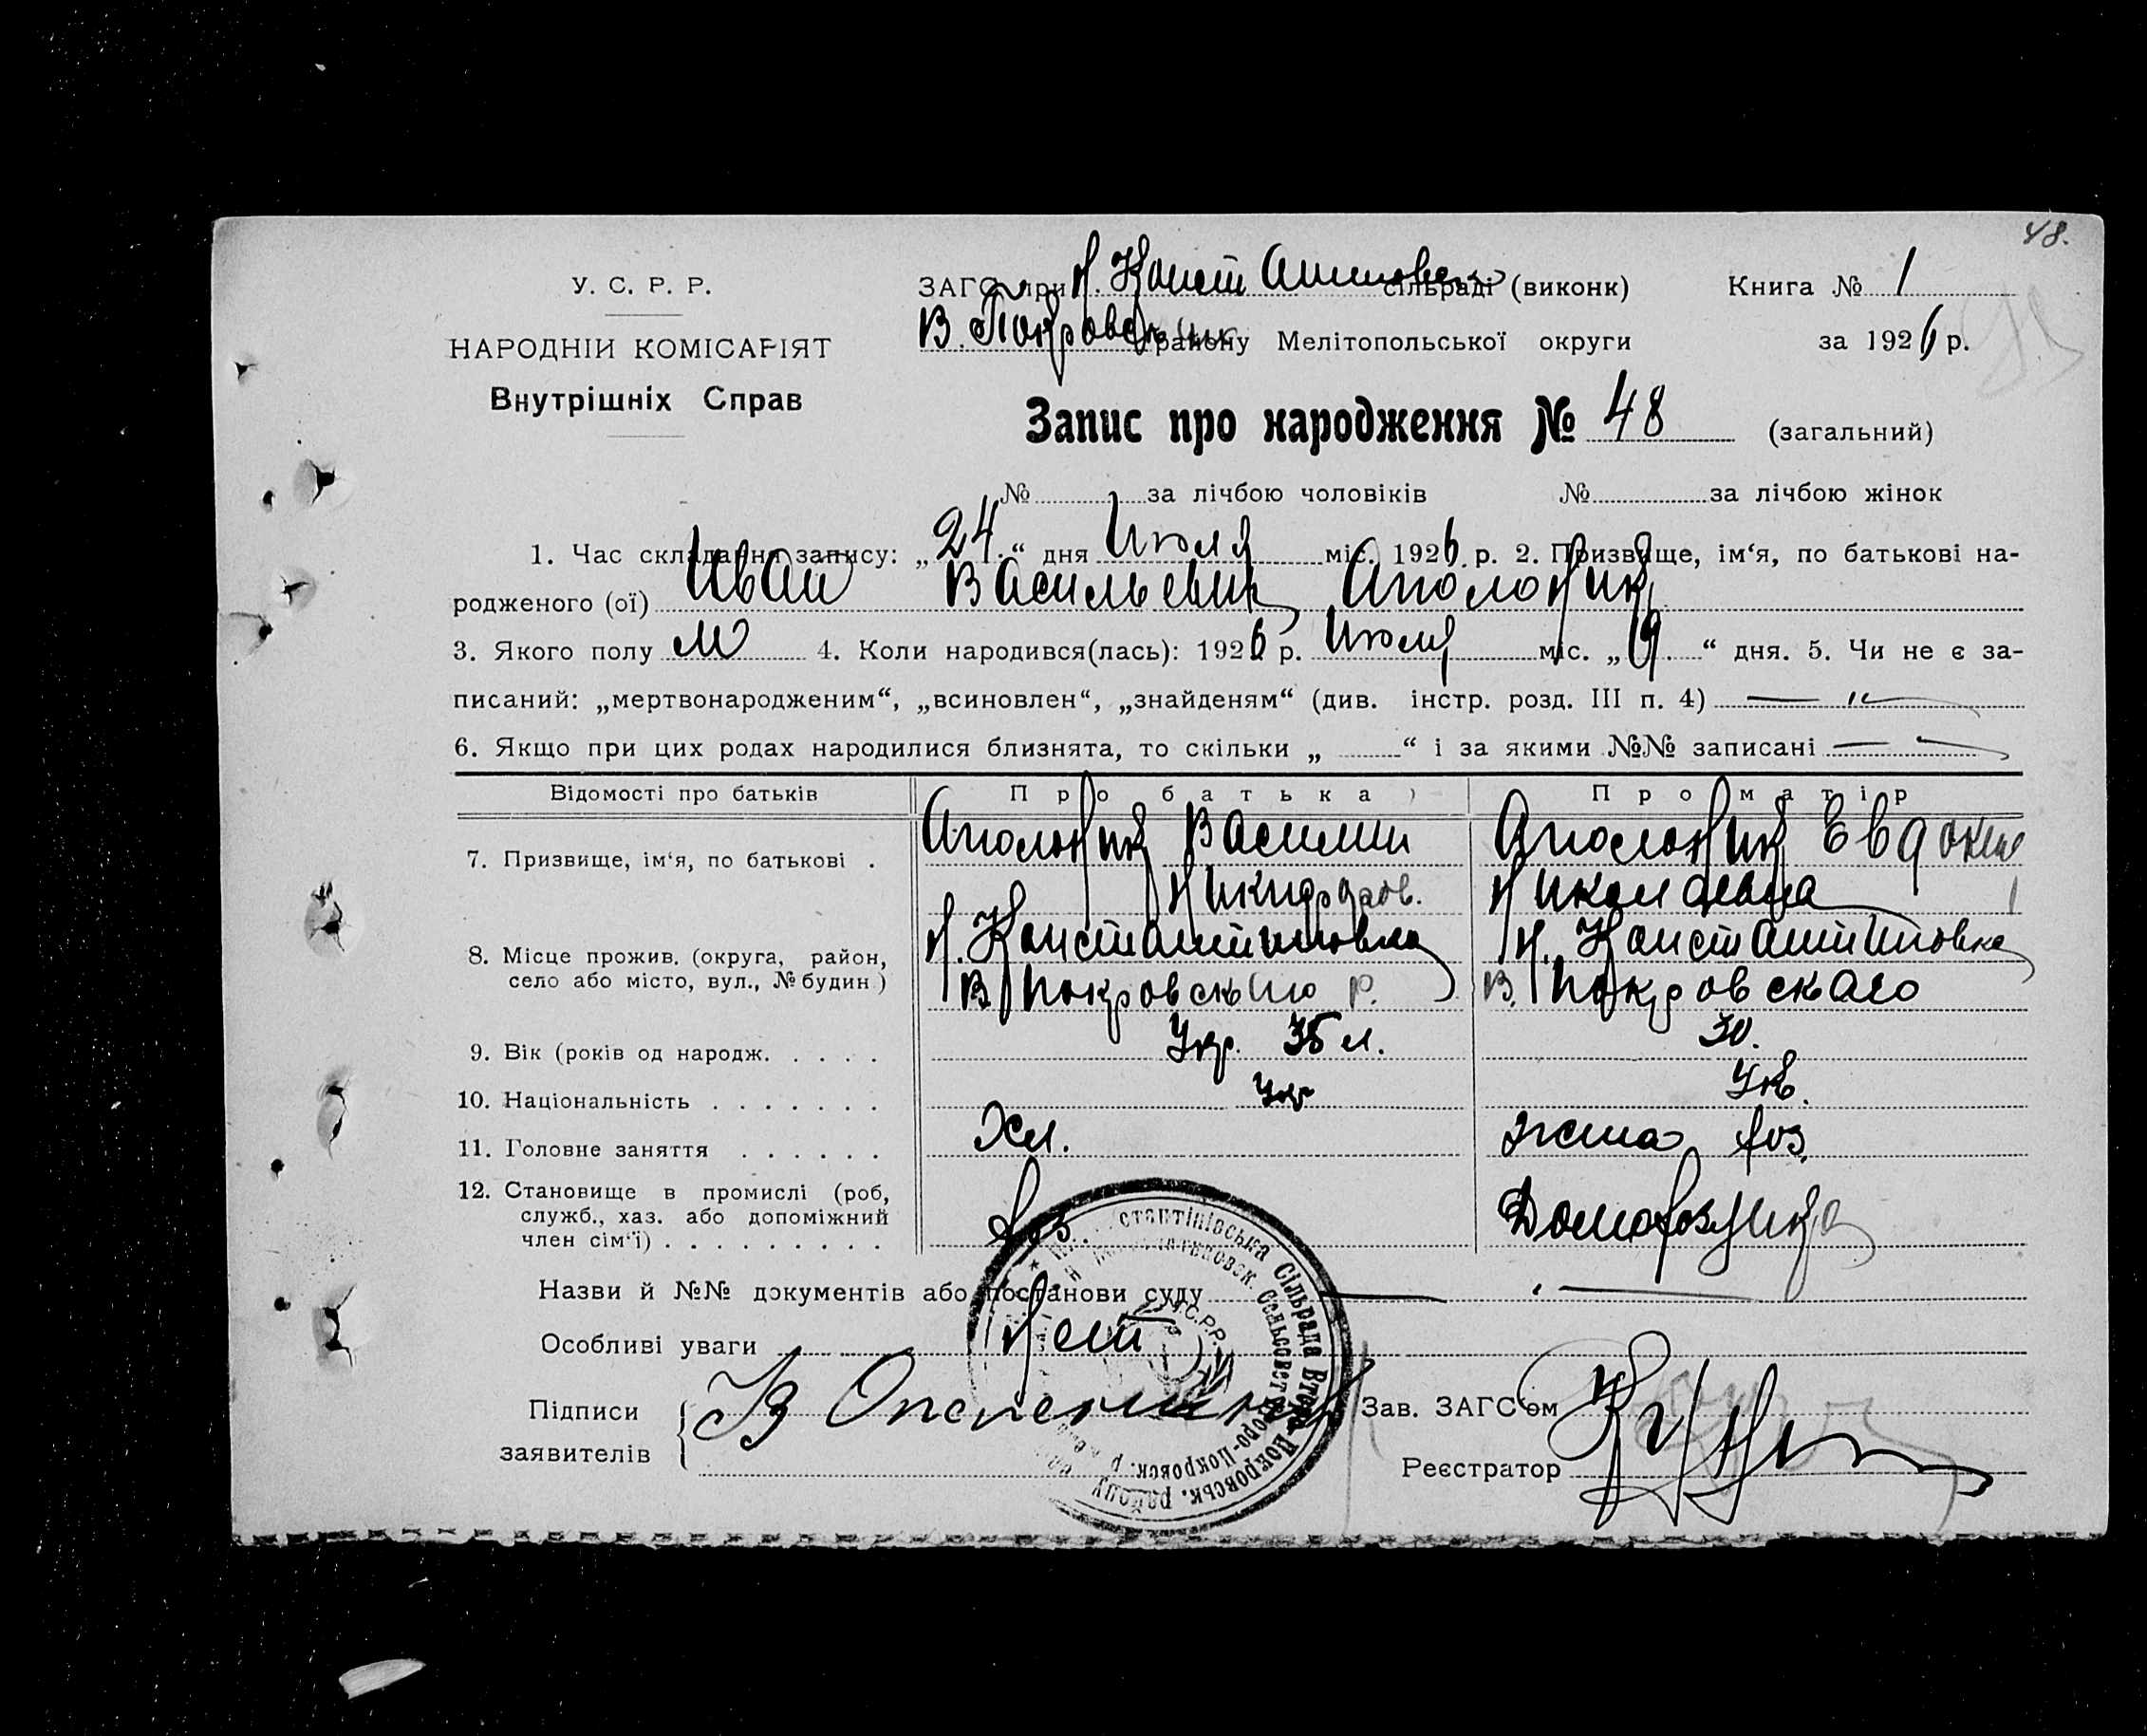 48.
У. С. Р. Р.
НАРОДНІЙ КОМІСАРІЯТ
Внутрішніх Справ
ЗАГС при Н. Констант сільраді (виконк) Книга № 1
В. Покровськ району Мелітопольської округи за 1926 р.
Запис про народження № 48 (загальний)
№ за лічбою чоловіків № за лічбою жінок
1. Час складання запису: „24“ дня Июля міс. 1926 р. 2. Призвище, ім‘я, по батькові на-
родженого (ої) Иван Васильевич
3. Якого полу М 4. Коли народився(лась): 1926 р. Июля міс. „19“ дня. 5. Чи не є за-
писаний: „мертвонародженим“, „всиновлен“, „знайденям“ (див. інстр. розд. III п. 4) —
6. Якщо при цих родах народилися близнята, то скільки „ “ і за якими №№ записані —
Відомості про батьків Про батька) Про матір
7. Призвище, ім‘я, по батькові . Аполоник Василий Аполоник Евдоким
Никифоров. Николаевна
8. Місце прожив. (округа, район, село або місто, вул., № будин) Н. Константиновка Н. Константиновка
В. Покровского Р. В. Покровскаго
9. Вік (років од народж. . . . . Укр. 35 л. 30.
10. Національність . . . . . . . Укр Ук.
11. Головне заняття . . . . . . Хл. жена хоз.
12. Становище в промислі (роб, служб., хаз. або допоміжний член сім‘ї) . . . . . . . . . хоз. Домохозяйка
Назви й №№ документів або постанови суду —
Особливі уваги Нет
Підписи заявителів В
Зав. ЗАГС‘ом
Реєстратор
стантінівська Сільрада Второ-Покровськ. району
сельсовет Второ-Покровск. р.
У.С.Р.Р.